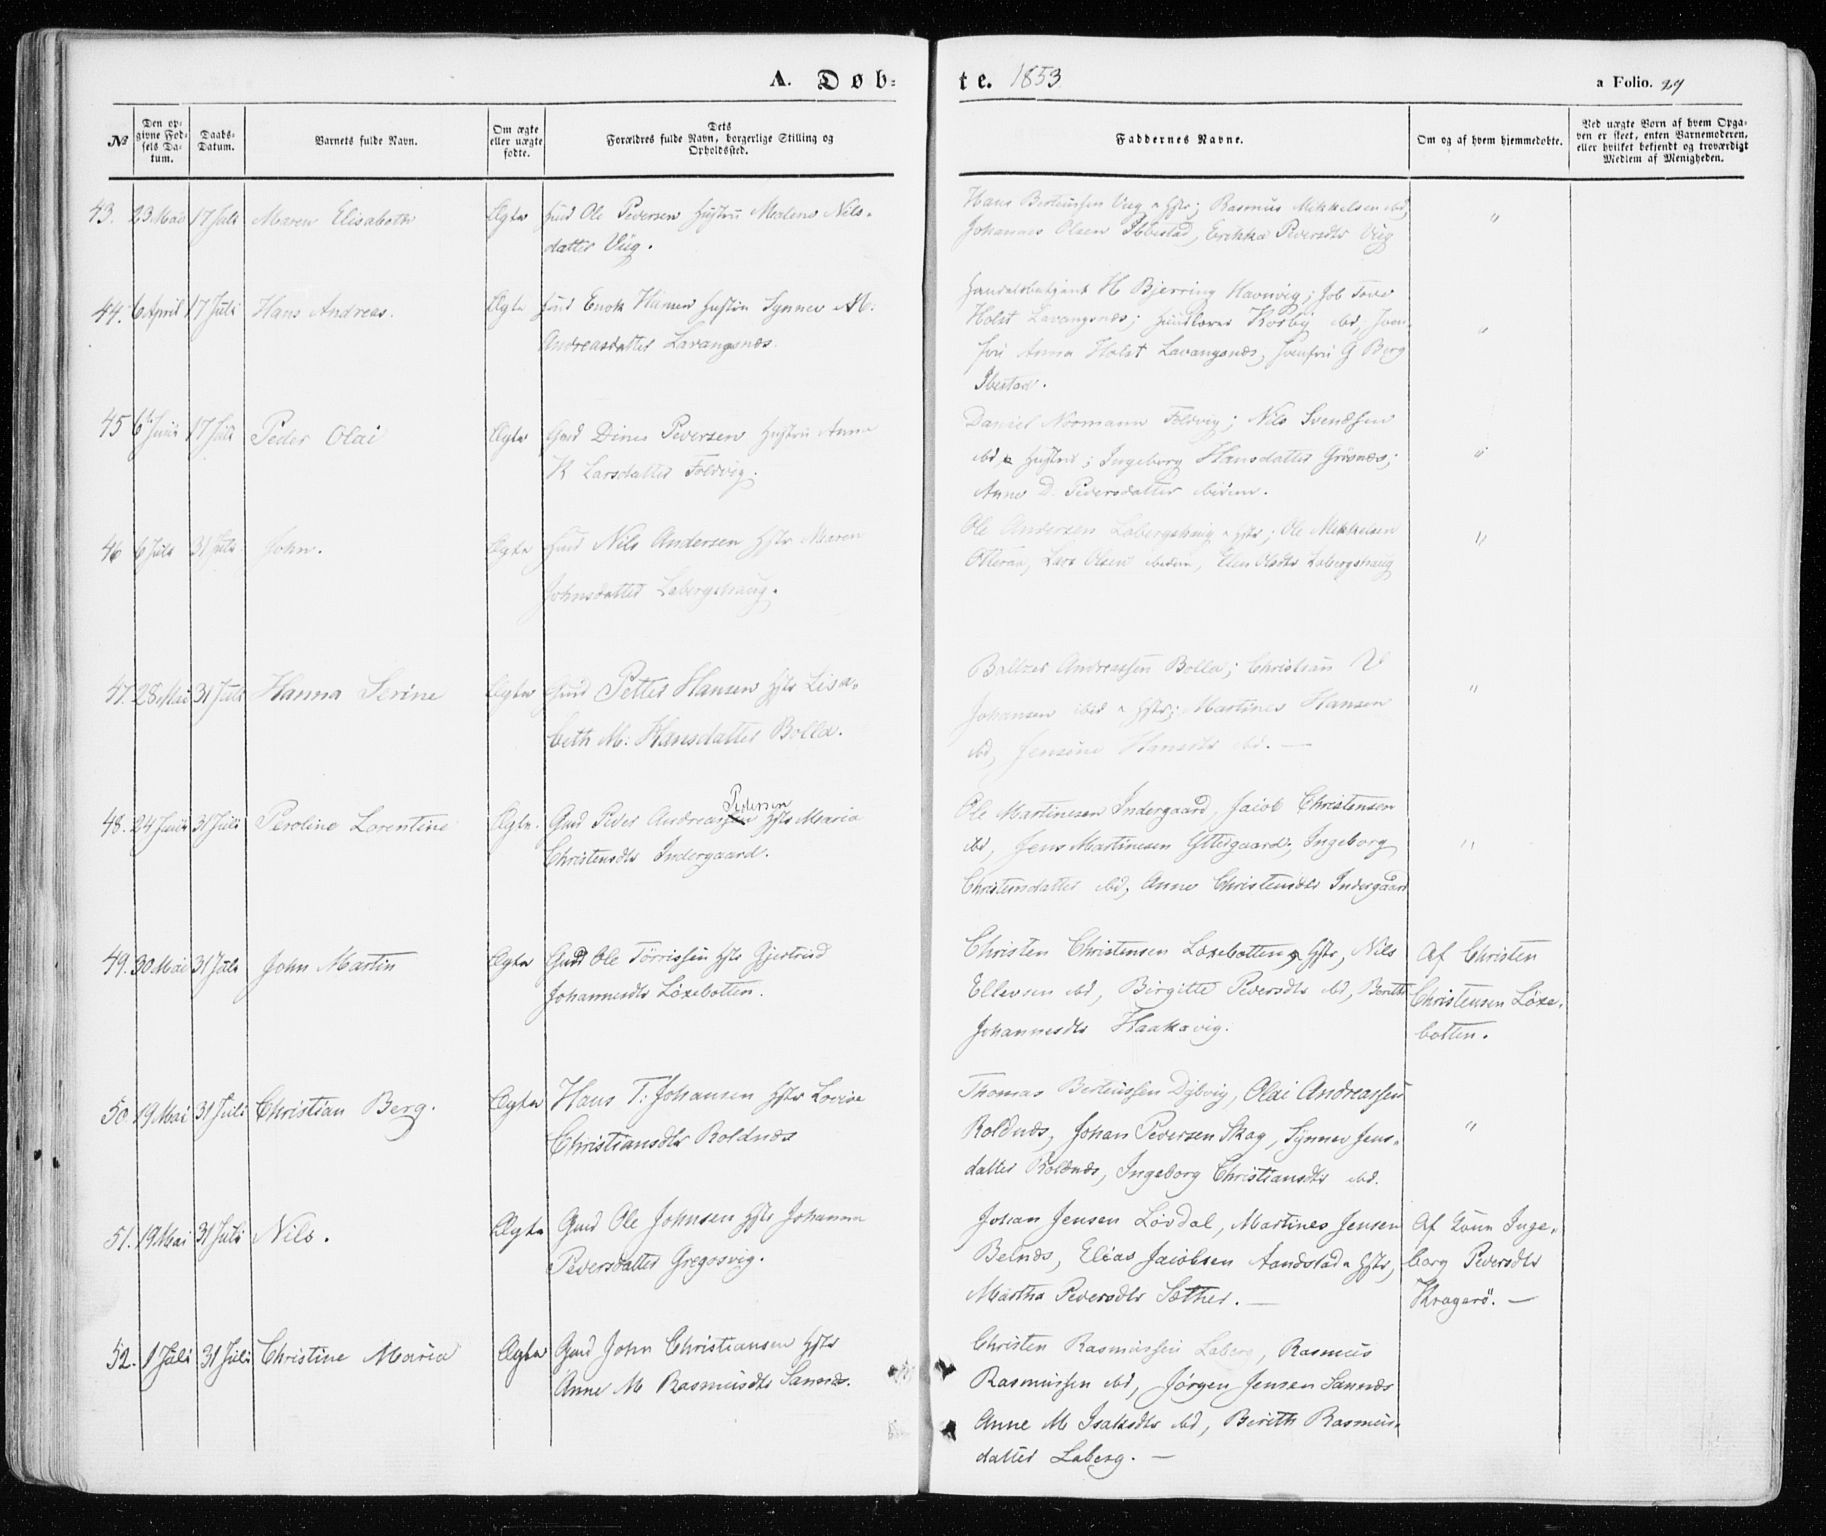 A. Døb-
te. 1853
a Folio. 29
№
Den op-
givne Fød-
sels Da-
tum.
Daabs-
Datum.
Barnets fulde Navn.
Om ægte
eller uægte
fødte.
Dets
Forældres fulde Navn, borgerlige Stilling og
Opholdssted.
Faddernes Navne.
Om og af hvem hjemmedøbte.
Ved uægte Barn af hvem Opga-
ven er skeet, enten Barnemoderen,
eller hvilket bekjendt og troværdigt
Medlem af Menigheden.
43. 23 Mai 17 Juli Maren Elisabeth Ægte Ole Pedersen Hustru Malene Nils-
datter Vüg.
Hans Berteussen Vüg Hstr; Rasmus Mikkelsen ibd,
Johannes Olsen Ibbestad, Erikka Pedersdtr Vüg
"
44. 6 April 17 Juli Hans Andreas. Ægte Enok Hustru Synnev M:
Andreasdatter Lavangsnæs.
H Bjerring Havnvig; Job
Holst Lavangsnæs; Kosbÿ ibd, Jom-
frü Anna Holst Lavangsnæs, Jomfrü G Berg
Ibestad.
"
45 6te Juni 17 Juli Peder Olai Ægte Gmd Dines Pedersen Hustru Anna
K Larsdatter Foldvig.
Daniel Normann Foldvig; Nils Svendsen
ibd & Hustru; Ingeborg Hansdatter Grøsnæs;
Anne D. Pedersdatter ibidem.
"
46 6 Juli 31 Juli John. Ægte Nils Andersen Hstr Maren
Johnsdatter Labergshaug.
Ole Andersen Labergshaug Hstr; Ole Mikkelsen
Otteraa, Lars Olsen ibidem, Elen Olsdtr Labergshaug
"
47. 28 Mai 31 Juli Hanna Serine Ægte Gmd Petter Hansen Hstr Lisa-
beth M: Hansdatter Bolla.
Baltzer Andreassen Bolla; Christian
Johansen ibid Hstr; Martines Hansen
ibd, Jensine Hansdtr ibd. —
"
48. 24 Juni 31 Juli Peroline Lorentine Ægte. Gmd Peder Andreassen Pedersen Hstr Maria
Christensdtr Indergaard.
Ole Martinesen Indergaard, Jacob Christensen
ibd, Jens Martinesen Yttergaard; Ingeborg
Christensdatter ibd, Anne Christensdtr Indergaard
"
49. 30 Mai 31 Juli John Martin Ægte Gmd Ole Tørrissen Hstr Gjertrud
Johannesdtr Løxebotten.
Christen Christensen Loxebotten & Hstr, Nils
Ellevsen ibd, Birgitte Pedersdtr ibd, Berith
Johannesdtr Haakavig.
Af Christen
Christensen Løxe-
botten.
50. 19 Mai 31 Juli Christian Berg. Ægte Hans T. Johansen Hstr Lovise
Christiansdtr Roldnæs
Thomas Berteussen Dÿbvig, Olai Andreassen
Roldnæs, Johan Pedersen Skog, Synnev Jens-
datter Roldnæs, Ingeborg Christiansdtr ibd.
"
51. 19 Mai 31 Juli Nils. Ægte Gmd Ole Johnsen Hstr Johanna
Pedersdatter Gregosvig.
Johan Jensen Løvdal, Martines Jensen
Belnæs, Elias Jacobsen Aandstad Hstr,
Martha Pedersdtr Sæther. —
Af Inge-
borg Pedersdtr
Kragerö. —
52. 1 Juli 31 Juli Christine Maria Ægte Gmd John Christiansen Hstr
Anne M Rasmusdtr Sannæs.
Christen Rasmussen Laberg, Rasmus
Rasmussen ibd, Jørgen Jensen Sannæs
Anne M Isaksdtr ibd, Berith Rasmus-
datter Laberg. —